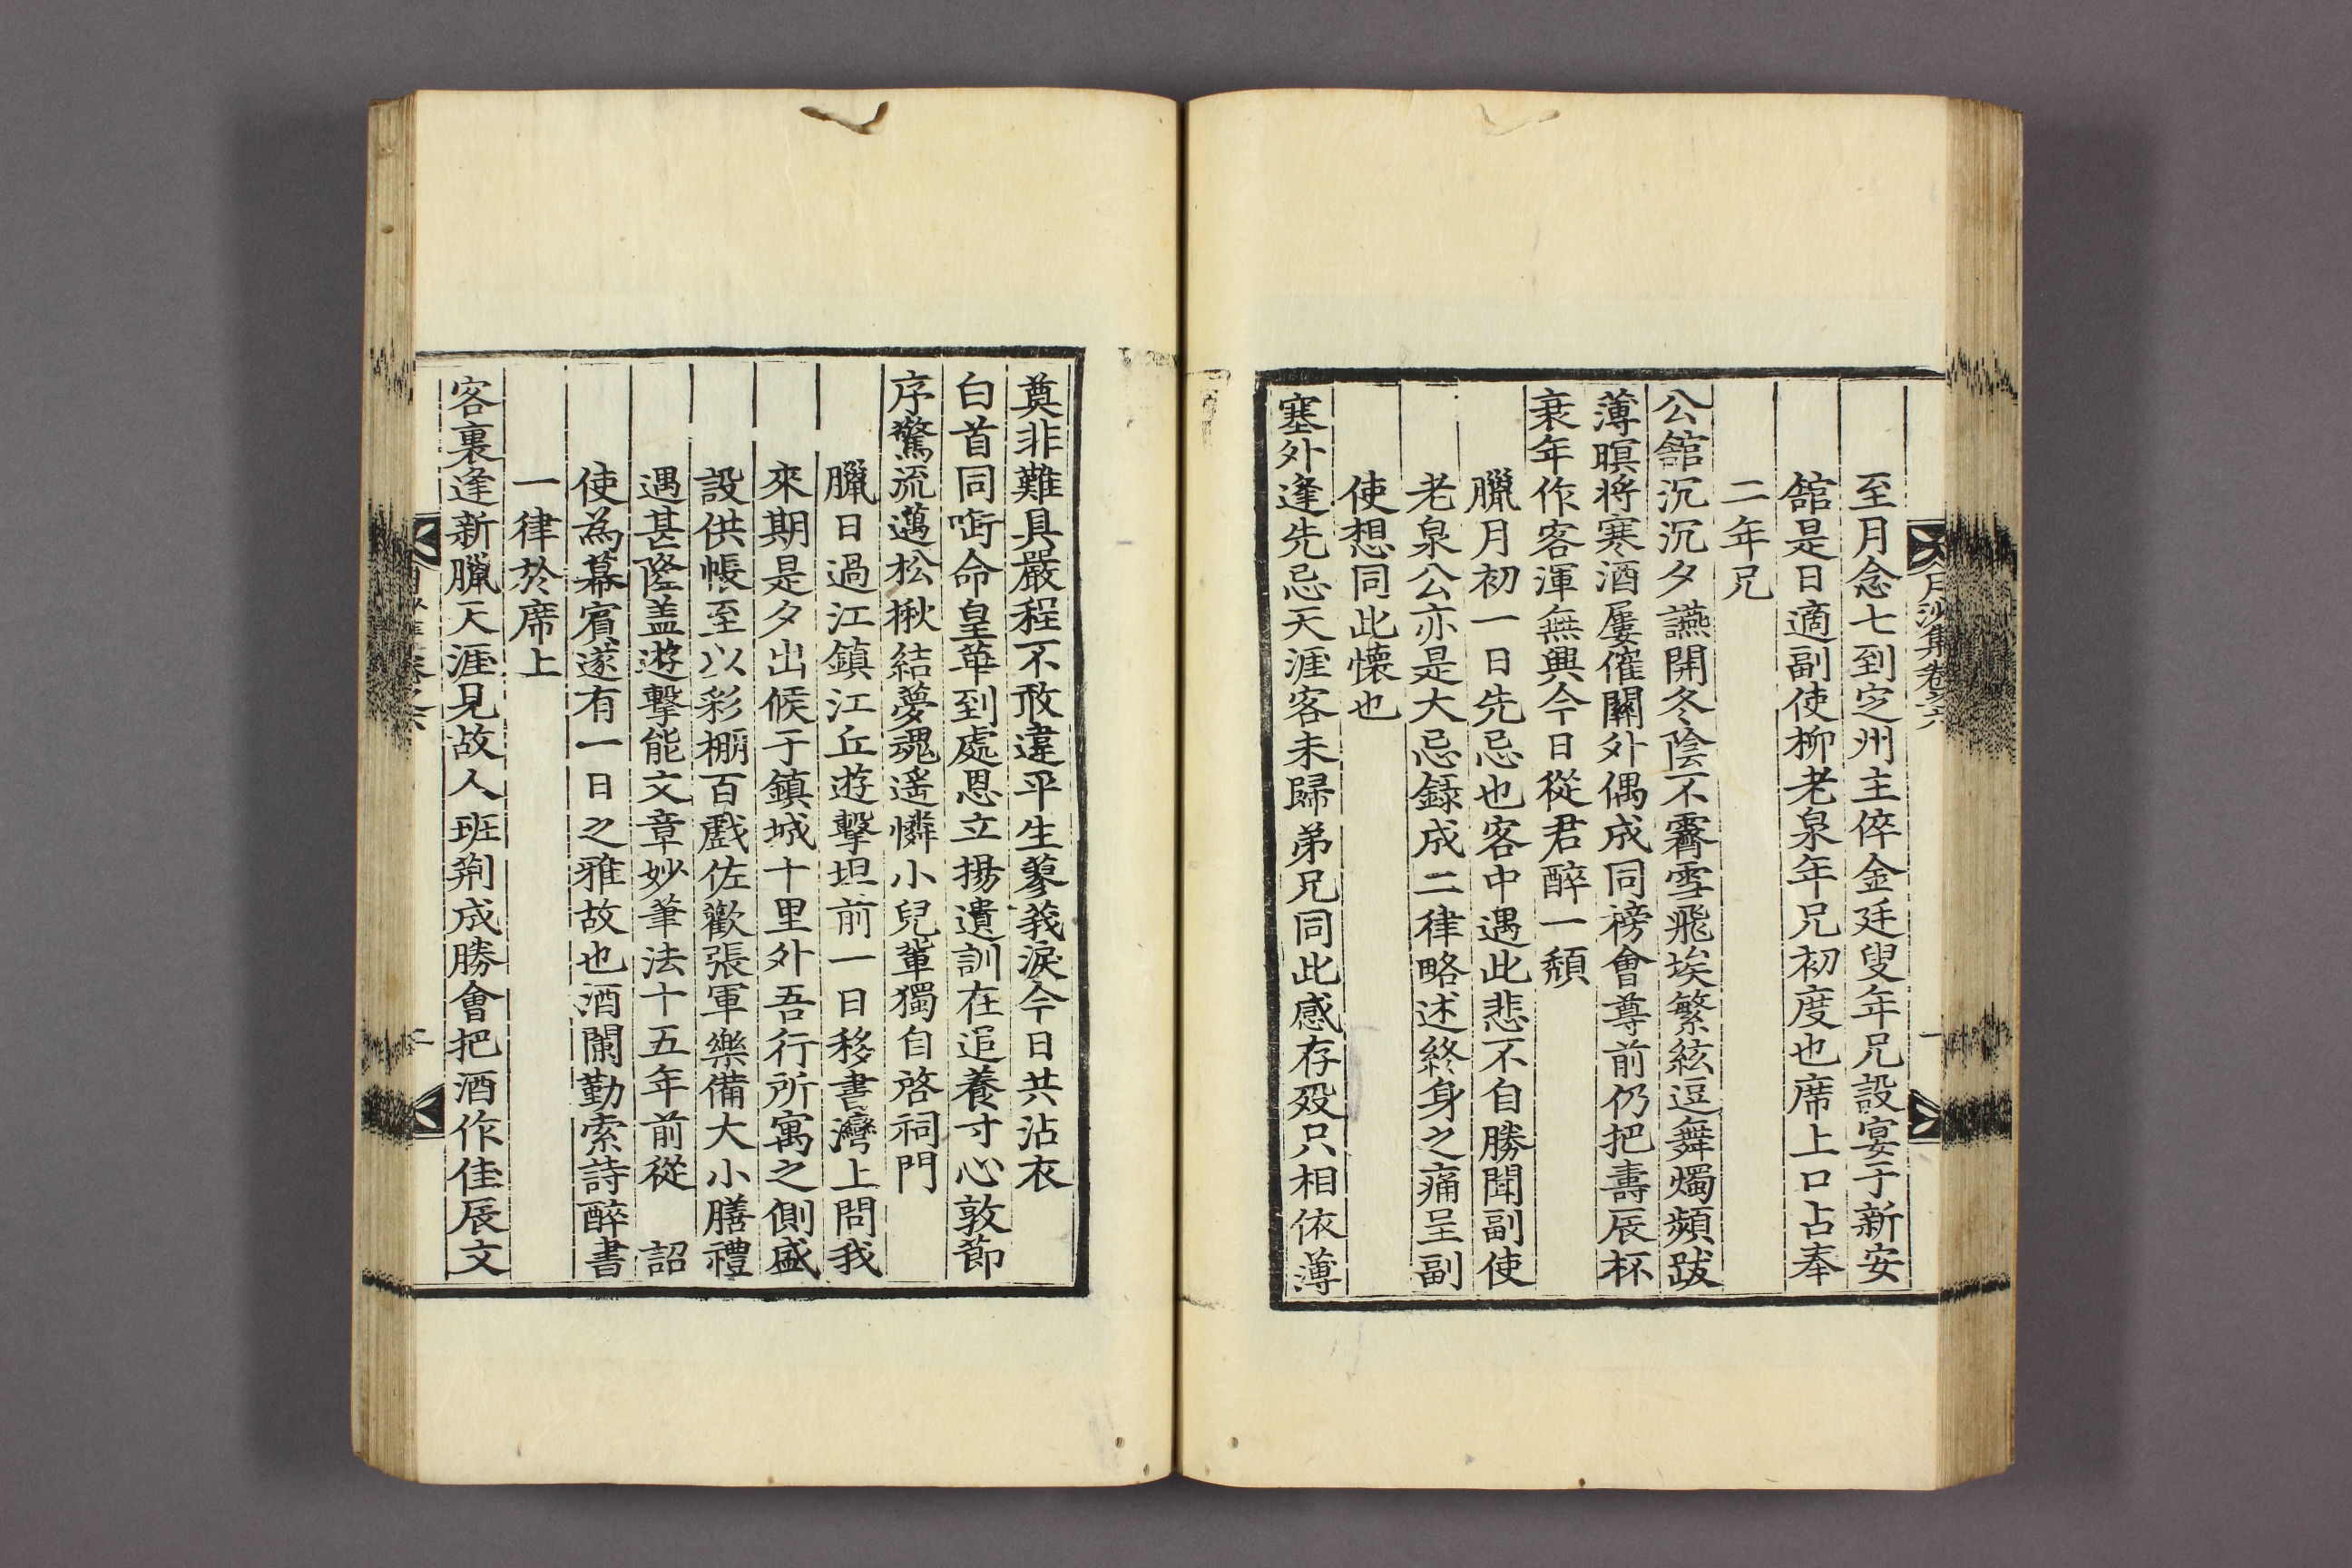 月沙集卷之六
一
至月念七到定州主倅金廷叟年兄設宴于新安
舘是日適副使柳老泉年兄初度也席上口占奉
二年兄
公舘沉沉夕讌開冬陰不霽雪飛埃繁絃逗舞燭頻跋
薄暝將寒酒屢催關外偶成同榜會尊前仍把壽辰杯
衰年作客渾無興今日從君醉一頹
臘月初一日先忌也客中遇此悲不自勝聞副使
老泉公亦是大忌錄成二律略述終身之痛呈副
使想同此懷也
塞外逢先忌天涯客未歸弟兄同此感存歿只相依薄
奠非難具嚴程不敢違平生蓼莪淚今日共沾衣
白首同啣命皇華到處恩立揚遺訓在追養寸心敦節
序驚流邁松楸結夢魂遙憐小兒輩獨自啓祠門
臘日過江鎮江丘遊擊坦前一日移書灣上問我
來期是夕出候于鎮城十里外吾行所寓之側盛
設供帳至以彩棚百戲佐歡張軍樂備大小膳禮
遇甚隆盖遊擊能文章妙筆法十五年前從 詔
使為幕賓遂有一日之雅故也酒闌勤索詩醉書
一律於席上
客裏逢新臘天涯見故人班荊成勝會把酒作佳辰文
二